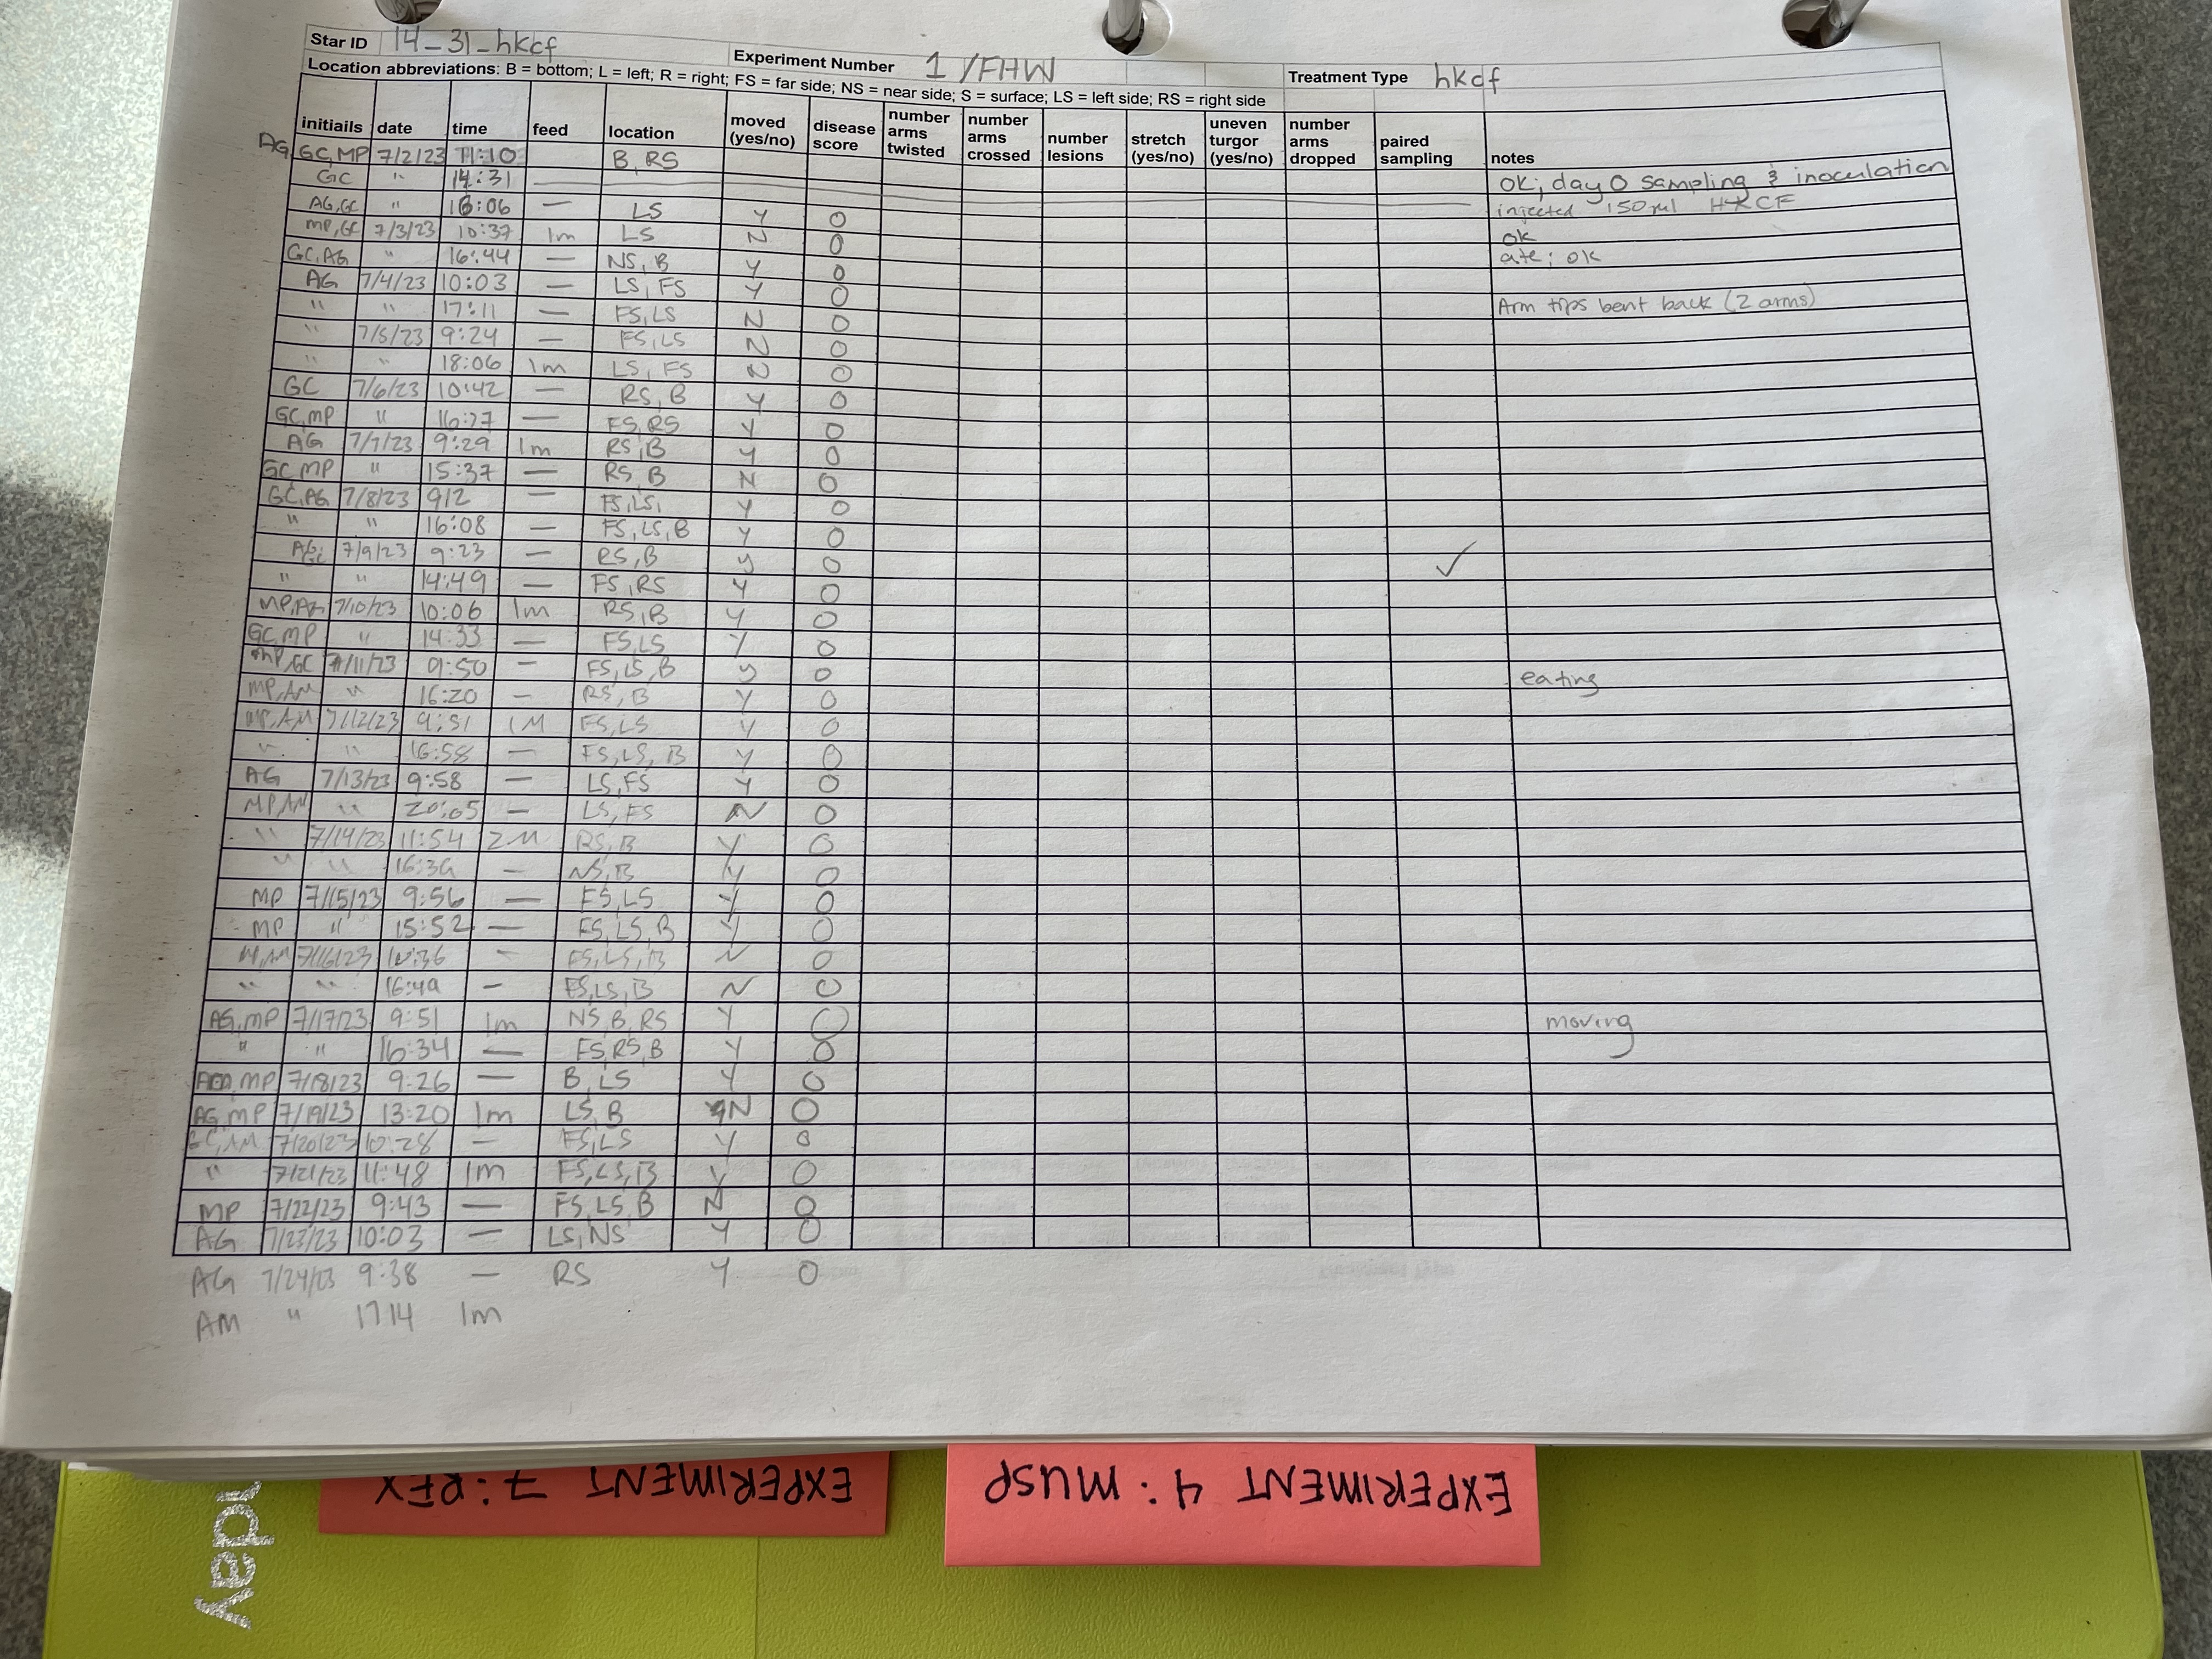 Star ID 14_31_hkcf Experiment Number 1/FHW Treatment Type hkcf
Location abbreviations: B = bottom; L = left; R = right; FS = far side; NS = near side; S = surface; LS = left side; RS = right side
initiails date time feed location moved (yes/no) disease score number arms twisted number arms crossed number lesions stretch (yes/no) uneven turgor (yes/no) number arms dropped paired sampling notes
AG, GC, MP 7/2/23 11:10 B, RS OK; day 0 sampling & inoculation
GC " 14:31 injected 150 µl HKCF
AG, GC " 16:06 — LS Y 0 ok
MP, GC 7/3/23 10:37 1m LS N 0 ate; ok
GC, AG " 16:44 — NS, B Y 0
AG 7/4/23 10:03 — LS, FS Y 0 Arm tips bent back (2 arms)
" " 17:11 — FS, LS N 0
" 7/5/23 9:24 — FS, LS N 0
" " 18:06 1m LS, FS N 0
GC 7/6/23 10:42 — RS, B Y 0
GC, MP " 16:27 — FS, RS Y 0
AG 7/7/23 9:29 1m RS, B Y 0
GC, MP " 15:37 — RS, B N 0
GC, AG 7/8/23 912 — FS, LS, Y 0
" " 16:08 — FS, LS, B Y 0
AG, GC 7/9/23 9:23 — RS, B Y 0 ✓
" " 14:49 — FS, RS Y 0
MP, AG 7/10/23 10:06 1m RS, B Y 0
GC, MP " 14:33 — FS, LS Y 0
MP, GC 7/11/23 9:50 — FS, LS, B Y 0 eating
MP, AM " 16:20 — RS, B Y 0
MP, AM 7/12/23 9:51 1M FS, LS Y 0
" " 16:58 — FS, LS, B Y 0
AG 7/13/23 9:58 — LS, FS Y 0
MP, AM " 20:05 — LS, FS N 0
" 7/14/23 11:54 2M RS, B Y 0
" " 16:39 — NS, B Y 0
MP 7/15/23 9:56 — FS, LS Y 0
MP " 15:52 — FS, LS, B Y 0
MP, AM 7/16/23 — FS, LS, B N 0
" " 16:49 — FS, LS, B N 0
AG, MP 7/17/23 9:51 1m NS, B, RS Y 0 moving
" " 16:34 — FS, RS, B Y 0
MP 7/18/23 9:26 — B, LS Y 0
AG, MP 7/19/23 13:20 1m LS, B N 0
GC, AM 7/20/23 10:28 — FS, LS Y 0
" 7/21/23 11:48 1m FS, LS, B Y 0
MP 7/22/23 9:43 — FS, LS, B N 0
AG 7/23/23 10:03 — LS, NS Y 0
AG 7/24/23 9:38 — RS Y 0
AM " 1714 1m
EXPERIMENT 7: PFX
EXPERIMENT 4: MUSP
nday